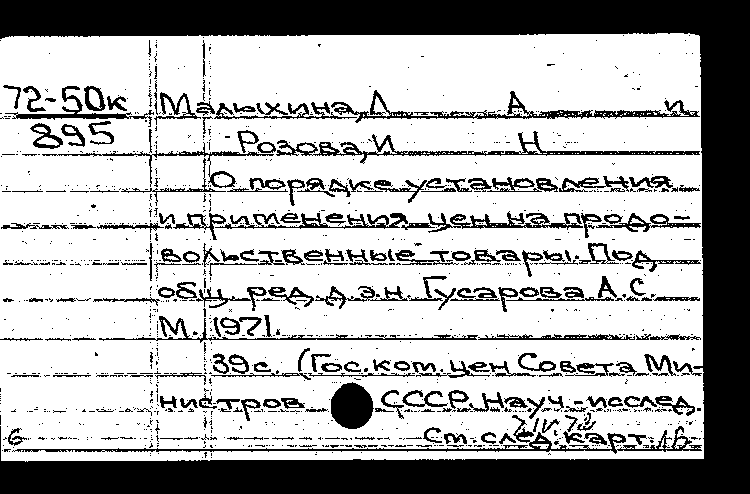 72-50к Малыхина, Л А и
895 Розова, И Н
О порядке установления
и применения цен на продо-
вольственные товары. Под
общ. ред. д.э.н. Гусарова А.С.
М., 1971.
39с. (Гос. ком. цен Совета Ми-
нистров СССР. Науч.-исслед.
7 IV 72
6 См. след. карт.